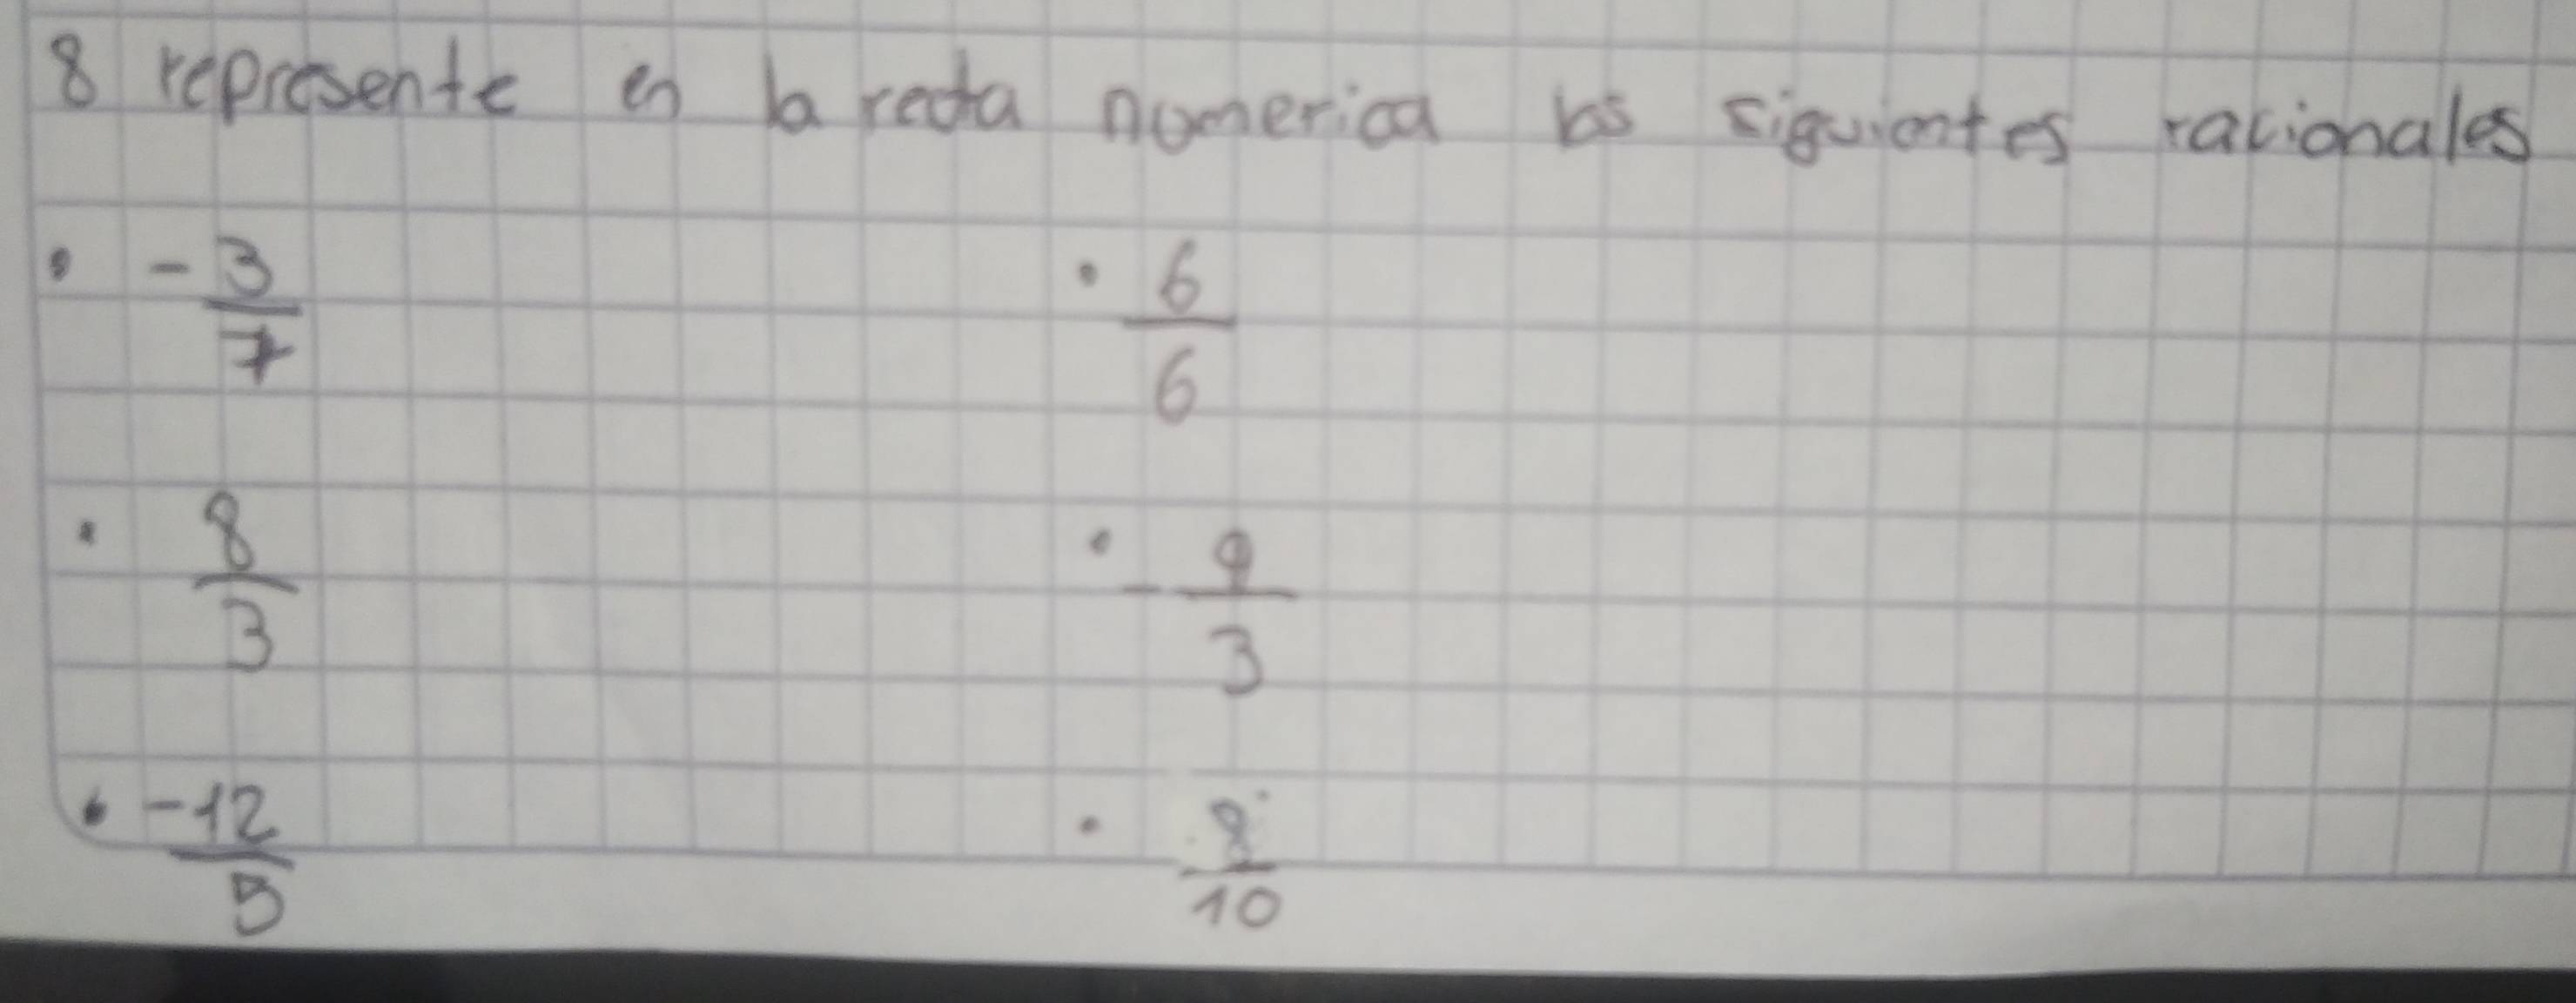 8 represente en la recta numerica los siguientes racionales
• -3/7 • 6/6
• 8/3 • -9/3
• -12/5 • 8/10